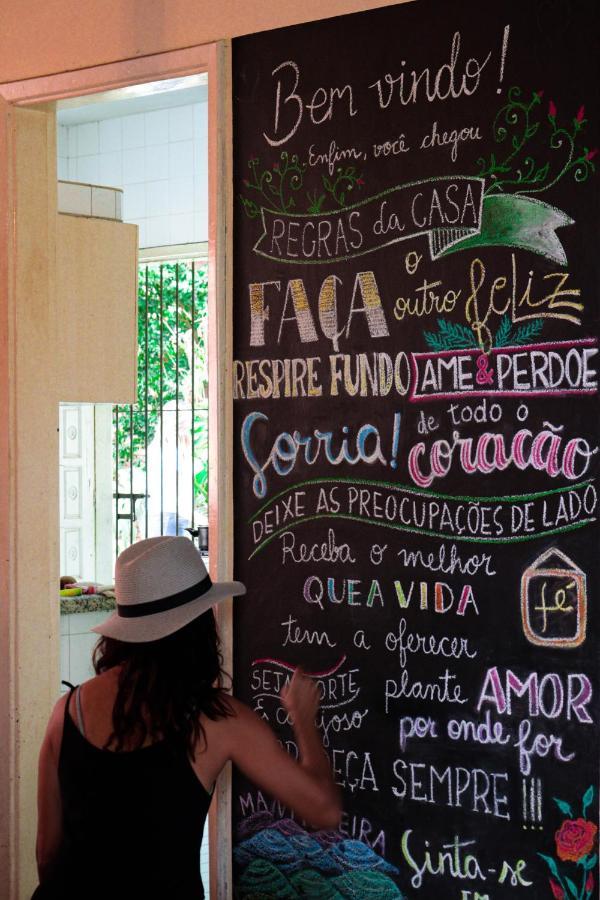 Bem vindo!
Enfim, você chegou
REGRAS da CASA
FAÇA o outro feliz
RESPIRE FUNDO AME & PERDOE
Sorria! de todo o coração
DEIXE AS PREOCUPAÇÕES DE LADO
Receba o melhor
QUE A VIDA
tem a oferecer
fé
SEJA FORTE
plante AMOR
por onde for
SEMPRE!!!
Sinta-se
EM